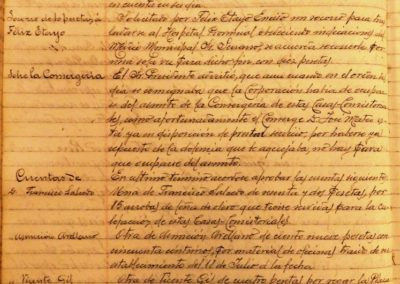 en cuenta en su dia.
Socorro de 10 pesetas á
Félix Etayo
Solicitado por Félix Etayo Encito un socorro para tras
ladarse al Hospital Provincial, obedeciendo indicaciones del
Médico Municipal Sr. se acuerda socorrerle por
una sola vez para dicho fin con diez pesetas.
Sobre la Consergería
El Sr. Presidente advirtió, que aun cuando en el orden del
dia se consignaba que la Corporación habia de ocupar
se del asunto de la Consergería de estas Casas Consistoria
les, como afortunadamente el Conserge D. José Matia es
tá ya en disposición de prestar servicio, por haberse ya
repuesto de la dolencia que le aquejaba, no hay para
que ocuparse del asunto.
Cuentas de
En ultimo término acordose aprobar las cuentas siguientes
D. Francisco Salcedo
Una de Francisco Salcedo de cuarenta y dos pesetas, por
15 arrobas de leña de olivo que tiene servidas para la ca
lefacción de estas Casas Consistoriales.
Asunción Arellano
Otra de Asunción Arellano de ciento nueve pesetas con
cincuenta centimos, por material de oficinas traido de su es
tablecimiento del 11 de Julio á la fecha.
Vicente Gil
Otra de Vicente Gil de cuatro pesetas por regar la Plaza